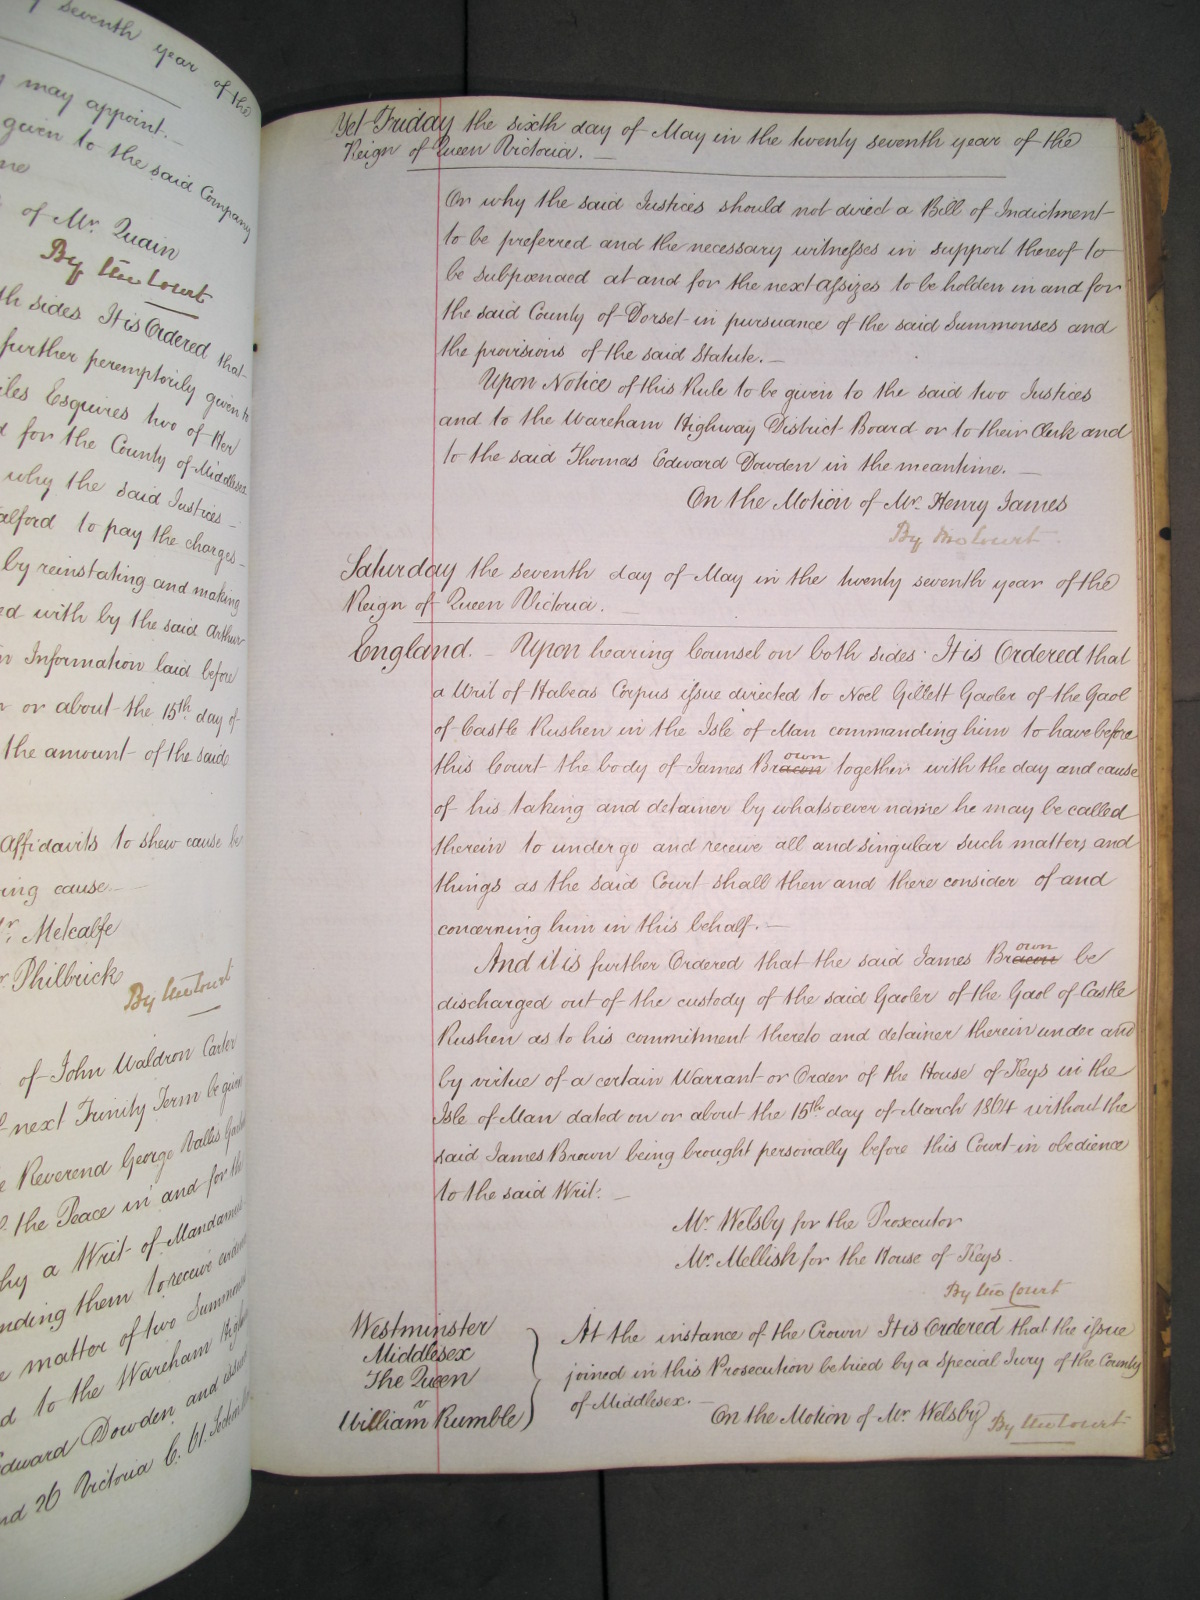 seventh year of the
may appoint.
given to the said Company
me
of Mr. Quain
By the Court
th sides It is Ordered that
further peremptorily given to
iles Esquires two of Her
d for the County of Middlesex
why the said Justices
alford to pay the charges
by reinstating and making
ed with by the said Arthur
Information laid before
or about the 15th. day of
the amount of the said
Affidavits to shew cause be
ing cause
Mr. Metcalfe
Philbrick
By the Court
of John Waldron Carter
next Trinity Term be given
Reverend George Vallis
the Peace in and for the
hy a Writ of Mandamus
nding them to receive
matter of two Summons
d to the Wareham High
Edward Dowden and
nd 26 Victoria C. 61. Section
Yet Friday the sixth day of May in the twenty seventh year of the
Reign of Queen Victoria.
Or why the said Justices should not direct a Bill of Indictment
to be preferred and the necessary witnesses in support thereof to
be subpœnaed at and for the next Assizes to be holden in and for
the said County of Dorset in pursuance of the said Summonses and
the provisions of the said Statute.
Upon Notice of this Rule to be given to the said two Justices
and to the Wareham Highway District Board or to their Clerk and
to the said Thomas Edward Dowden in the meantime.
On the Motion of Mr. Henry James
By the Court
Saturday the seventh day of May in the twenty seventh year of the
Reign of Queen Victoria.
England. Upon hearing Counsel on both sides It is Ordered that
a Writ of Habeas Corpus issue directed to Noel Gillett Gaoler of the Gaol
of Castle Rushen in the Isle of Man commanding him to have before
this Court the body of James Bracon own together with the day and cause
of his taking and detainer by whatsoever name he may be called
therein to undergo and receive all and singular such matters and
things as the said Court shall then and there consider of and
concerning him in this behalf.
And it is further Ordered that the said James Bracon own be
discharged out of the custody of the said Gaoler of the Gaol of Castle
Rushen as to his commitment thereto and detainer therein under and
by virtue of a certain Warrant or Order of the House of Keys in the
Isle of Man dated on or about the 15th. day of March 1864 without the
said James Brown being brought personally before this Court in obedience
to the said Writ.
Mr. Welsby for the Prosecutor
Mr. Mellish for the House of Keys.
By the Court
Westminster
Middlesex
The Queen
v
William Rumble
At the instance of the Crown It is Ordered that the issue
joined in this Prosecution be tried by a Special Jury of the County
of Middlesex.
On the Motion of Mr. Welsby By the Court